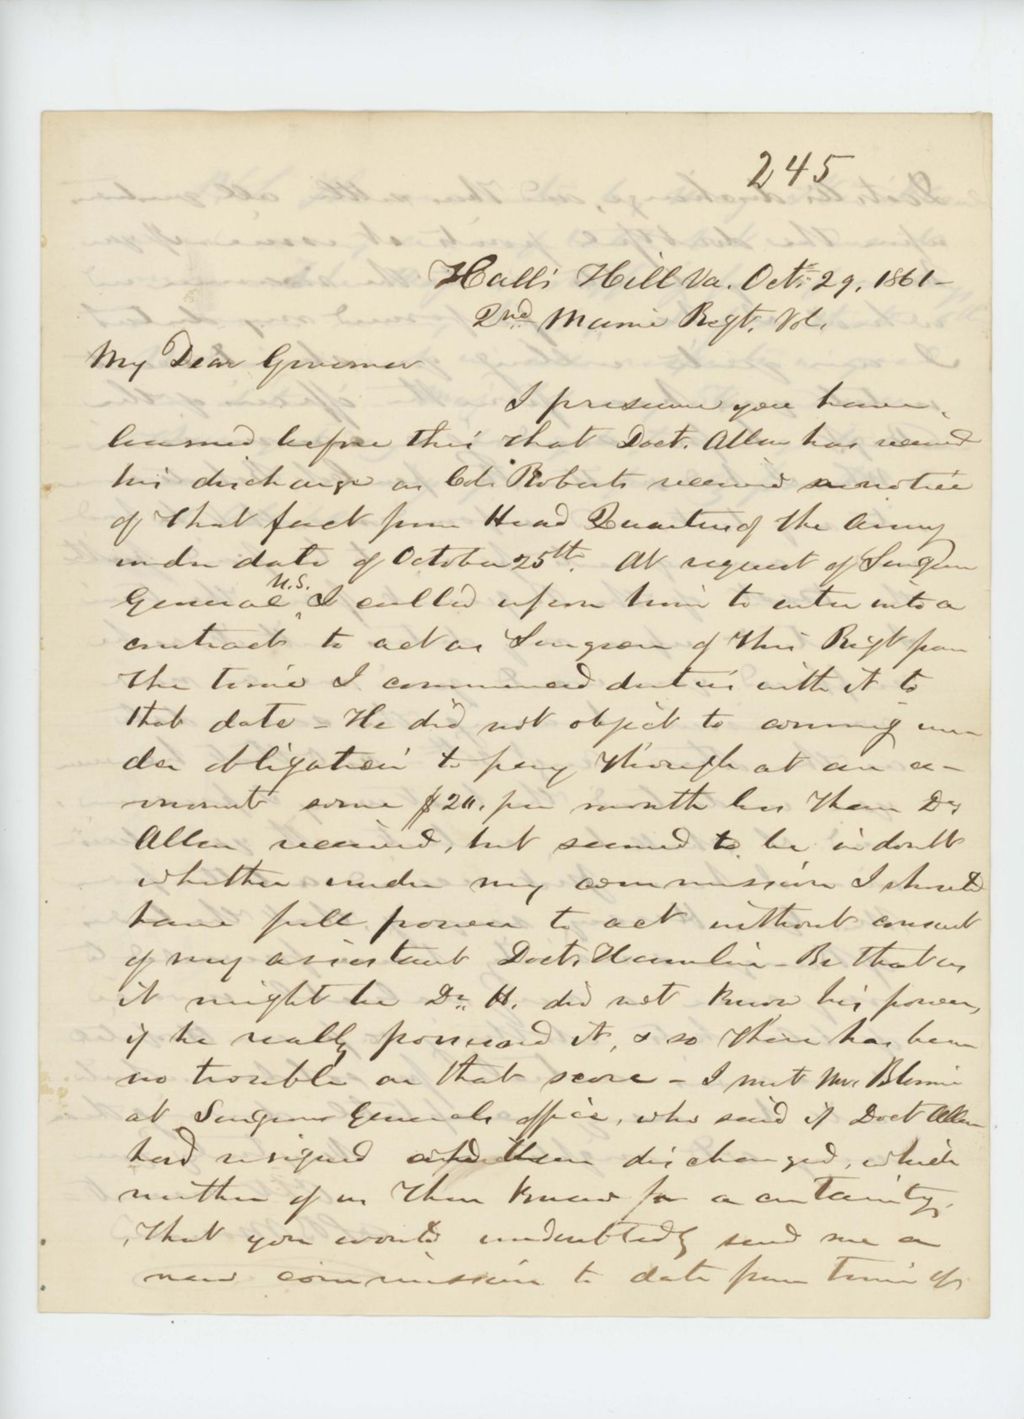 245
Hall's Hill Va. Oct. 29, 1861-
2nd Maine Regt. Vol.
My Dear Governor
I presume you have
learned before this that Doct. Allen has received
his discharge as Col. Roberts received a notice
of that fact from Head Quarters of the Army
under date of October 25th. At request of Surgeon
General U.S. I called upon him to enter into a
contract to act as Surgeon of this Regt from
the time I commenced duties with it to
that date - He did not object to coming un
der obligation to pay though at an a-
mount some $20. per month less than Dr
Allen received, but seemed to be in doubt
whether under my commission I should
have full power to act without consent
of my assistant Doct. Hamlin - Be that as
it might be Dr. H. did not know his power,
if he really possessed it, & so there has been
no trouble on that score - I met Mr. Blunt
at Surgeons Generals office, who said if Doct Allen
had resigned discharged, which
neither of us then knew for a certainty,
that you would undoubtedly send me a
new commission to date from time of